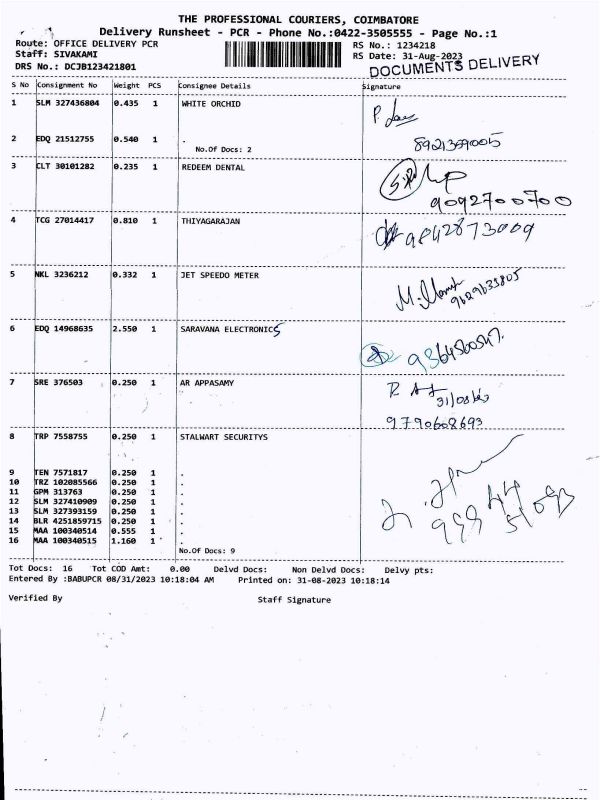 THE PROFESSIONAL COURIERS, COIMBATORE
Delivery Runsheet - PCR - Phone No.:0422-3505555 - Page No.:1
Route: OFFICE DELIVERY PCR RS No.: 1234218
Staff: SIVAKAMI RS Date: 31-Aug-2023
DRS No.: DCJB123421801 DOCUMENTS DELIVERY
S No Consignment No Weight PCS Consignee Details Signature
1 SLM 327436804 0.435 1 WHITE ORCHID
2 EDQ 21512755 0.540 1 . 8921309005
No.Of Docs: 2
3 CLT 30101282 0.235 1 REDEEM DENTAL
9092700700
4 TCG 27014417 0.810 1 THIYAGARAJAN 9842873009
5 NKL 3236212 0.332 1 JET SPEEDO METER 9629633805
6 EDQ 14968635 2.550 1 SARAVANA ELECTRONICS
7 SRE 376503 0.250 1 AR APPASAMY
31/08/23
9790608693
8 TRP 7558755 0.250 1 STALWART SECURITYS
9 TEN 7571817 0.250 1 .
10 TRZ 102085566 0.250 1 .
11 GPM 313763 0.250 1 .
12 SLM 327410909 0.250 1 .
13 SLM 327393159 0.250 1 .
14 BLR 4251859715 0.250 1 .
15 MAA 100340514 0.555 1 .
16 MAA 100340515 1.160 1 .
No.Of Docs: 9
Tot Docs: 16 Tot COD Amt: 0.00 Delvd Docs: Non Delvd Docs: Delvy pts:
Entered By :BABUPCR 08/31/2023 10:18:04 AM Printed on: 31-08-2023 10:18:14
Verified By Staff Signature